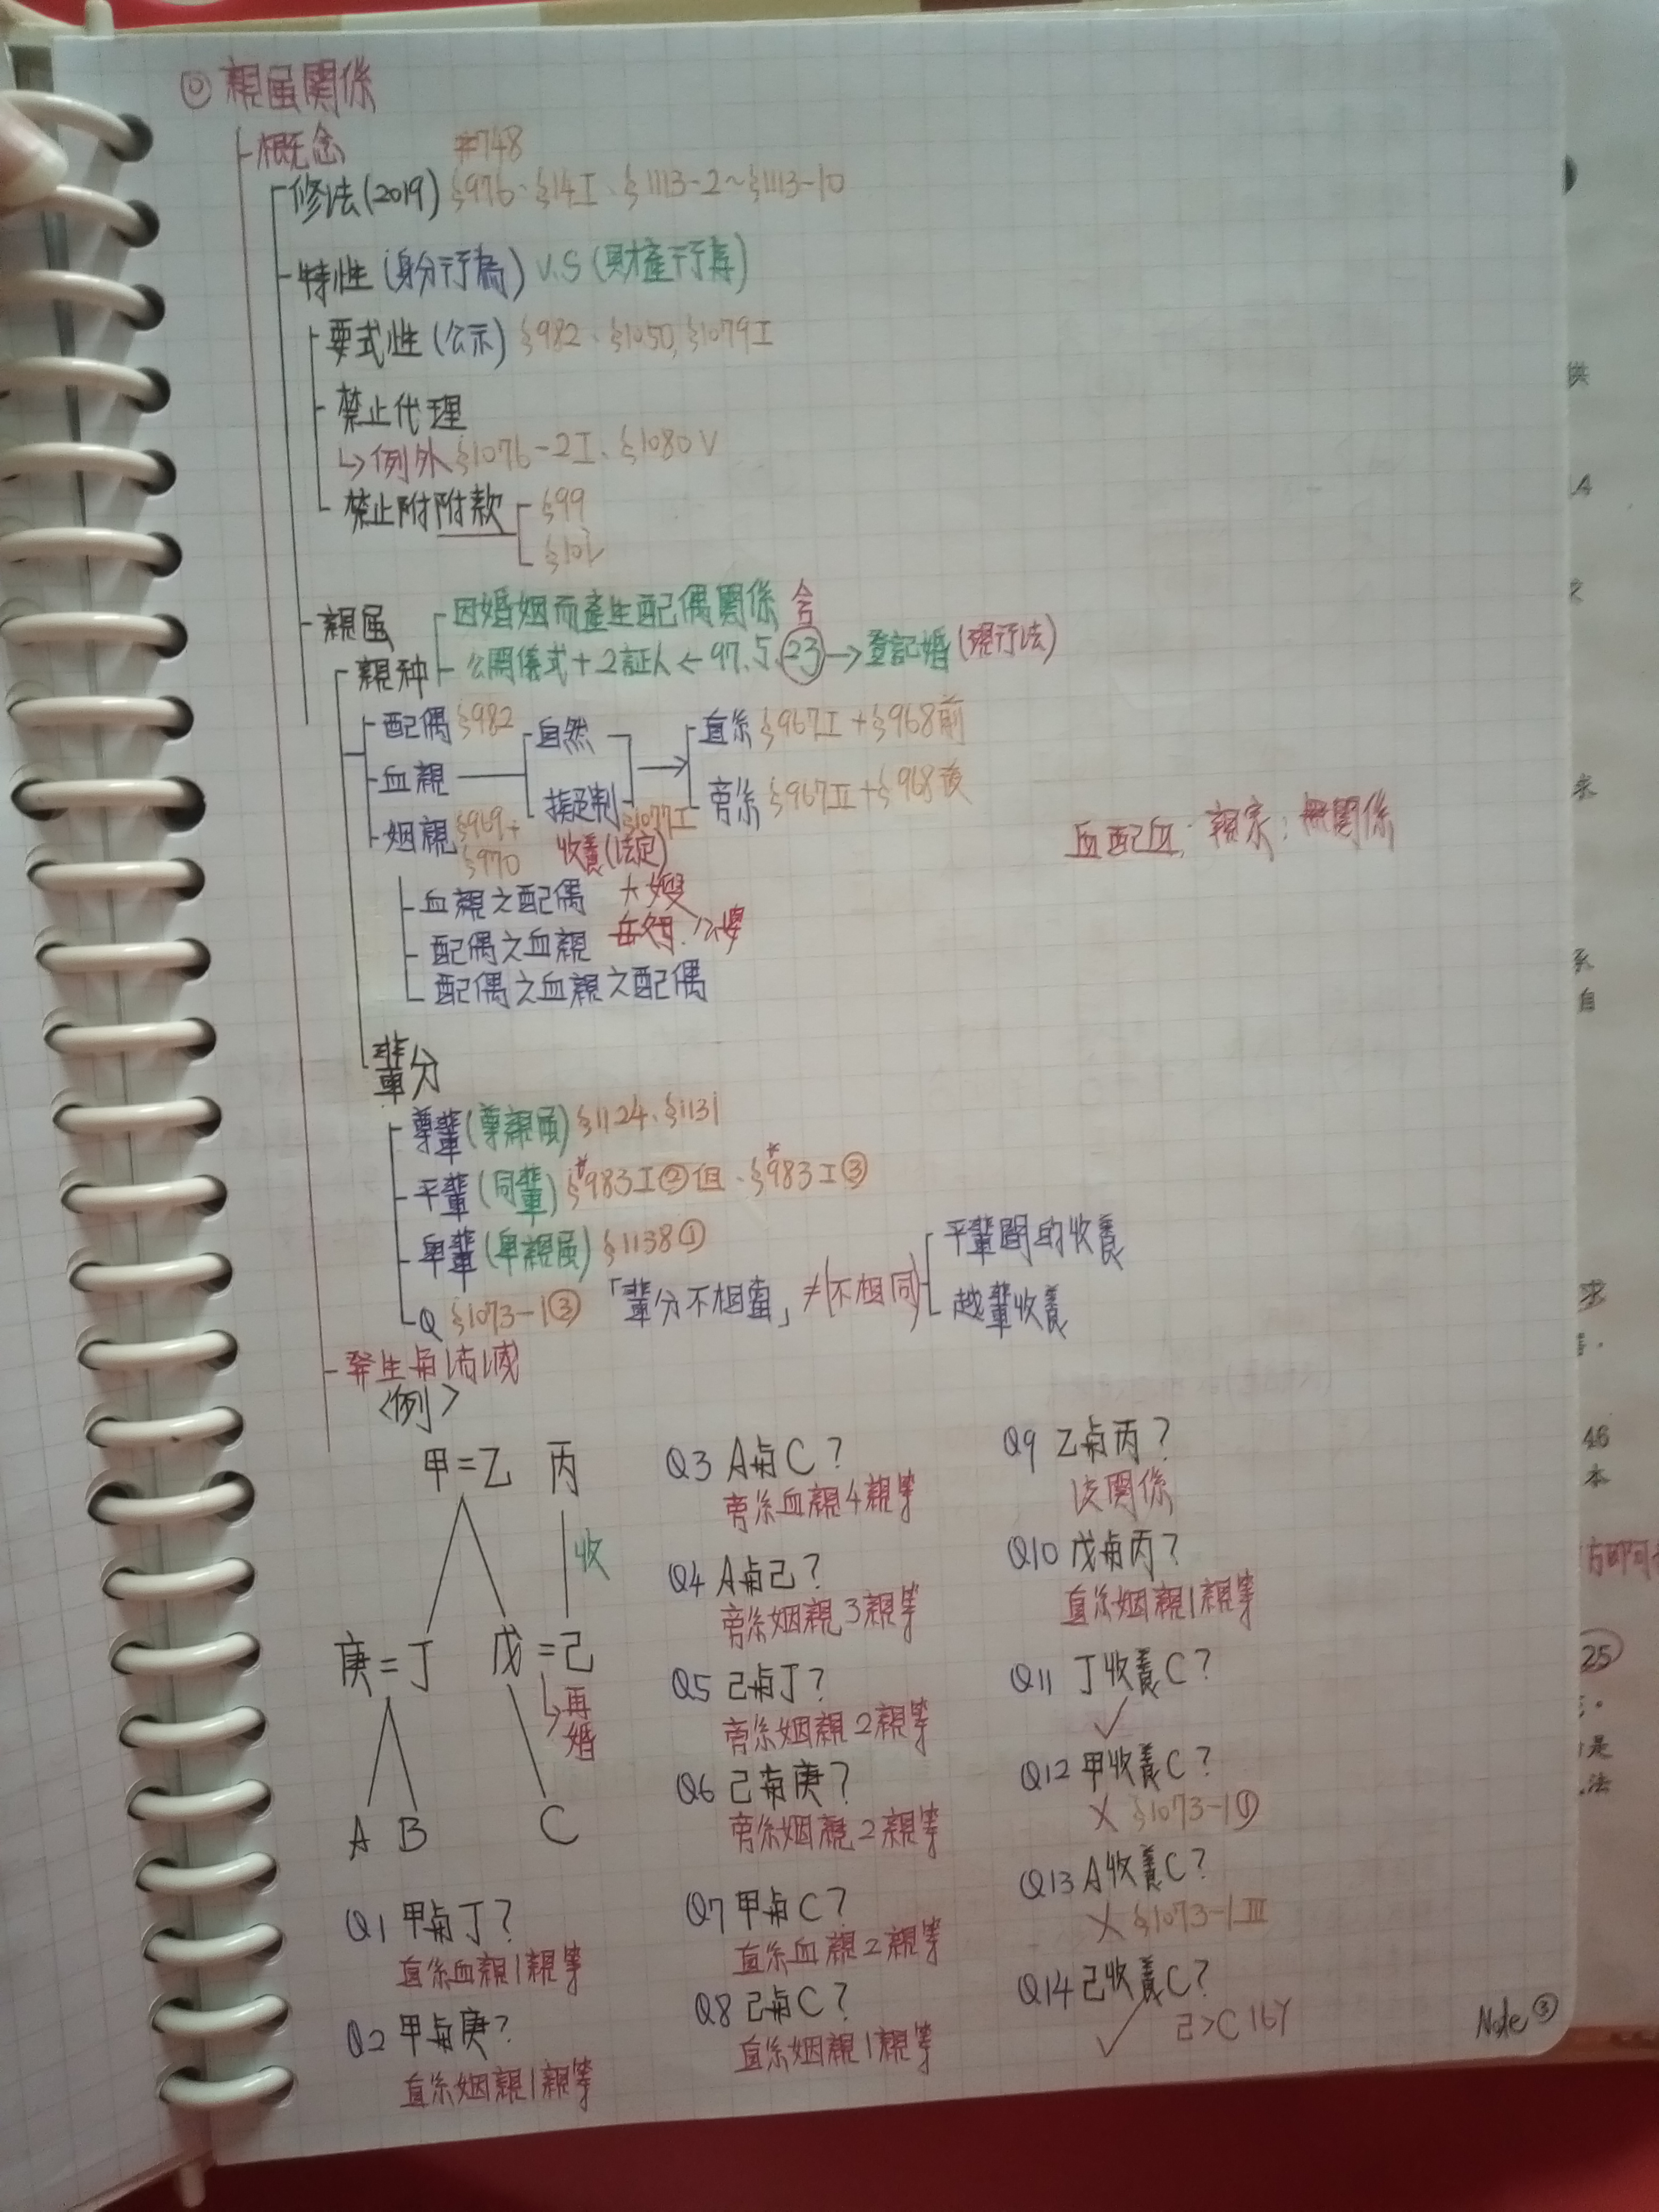 親屬關係
概念 #748
修法(2019) §976、§14I、§1113-2~§1113-10
特性(身分行為) V.S (財產行為)
要式性(公示) §982、§1050,§1079I
禁止代理
↳例外 §1076-2I、§1080V
禁止附附款 §99
§102
親屬 因婚姻而產生配偶關係 合
親种 公開儀式+2証人←97.5.23→登記婚(現行法)
配偶 §982 自然 直系 §967I+§968前
血親 擬制 §1077I 旁系 §967II+§968後
姻親 §969+§970 收養(法定)
血配血:親家:無關係
血親之配偶 大嫂
配偶之血親 岳父母.公婆
配偶之血親之配偶
輩分
尊輩(尊親屬) §1124、§1131
平輩(同輩) §983I②但、§983I③
卑輩(卑親屬) §1138①
Q §1073-1③ 「輩分不相當」≠(不相同) 平輩間的收養
越輩收養
發生與消滅
<例>
甲=乙 丙
收
庚=丁 戊=己
↳再婚
A B C
Q1 甲與丁?
直系血親1親等
Q2 甲與庚?
直系姻親1親等
Q3 A與C?
旁系血親4親等
Q4 A與己?
旁系姻親3親等
Q5 己與丁?
旁系姻親2親等
Q6 己與庚?
旁系姻親2親等
Q7 甲與C?
直系血親2親等
Q8 己與C?
直系姻親1親等
Q9 乙與丙?
沒關係
Q10 戊與丙?
直系姻親1親等
Q11 丁收養C?
✓
Q12 甲收養C?
X §1073-1①
Q13 A收養C?
X §1073-1III
Q14 己收養C?
✓ 己>C 16Y
Note③
供
求
46
本
25
是
法